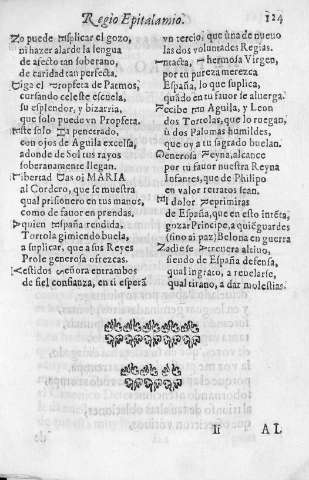 Regio Epitalamio. 124
No puede explicar el gozo,
ni hazer alarde la lengua
de afecto tan soberano,
de caridad tan perfecta.
Diga el Propfeta de Patmos,
cursando celeste escuela,
su esplendor, y bizarria,
que solo puede vn Propfeta.
Este solo ha penetrado,
con ojos de Aguila excelsa,
adonde de Sol tus rayos
soberanamente llegan.
Libertad das oi MARIA
al Cordero, que se muestra
qual prisionero en tus manos,
como de fauor en prendas.
A quien España rendida,
Tortola gimiendo buela,
a suplicar, que a sus Reyes
Prole generosa ofrezcas.
Vestidos Señora entrambos
de fiel confianza, en ti esperã
vn tercio, que ùna de nueuo
las dos voluntades Regias.
Intacta, i hermosa Virgen,
por tu pureza merezca
España, lo que suplica,
quãdo en tu fauor se aluerga.
Recibe pues Aguila, y Leon
dos Tortolas, que lo ruegan,
ù dos Palomas humildes,
que oy a tu sagrado buelan.
Generosa Reyna, alcance
por tu fauor nuestra Reyna
Infantes, que de Philipo
en valor retratos sean.
El dolor reprimiras
de España, que en esto intẽta,
gozar Principe, a quiẽ guardes
(sino al paz) Belona en guerra
Nadie se atreuera altiuo,
siendo de España defensa,
qual ingrato, a reuelarse,
qual tirano, a dar molestias.
Ii AL